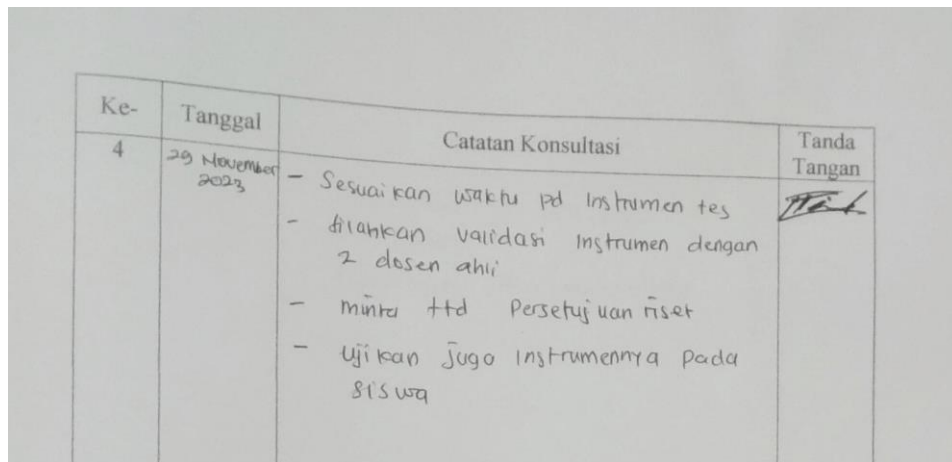 Ke-
Tanggal
Catatan Konsultasi
Tanda
Tangan
4
29 November
2023
- Sesuaikan waktu pd Instrumen tes
- silahkan validasi Instrumen dengan
2 dosen ahli
- minta ttd Persetujuan riset
- Ujikan jugo Instrumennya pada
siswa